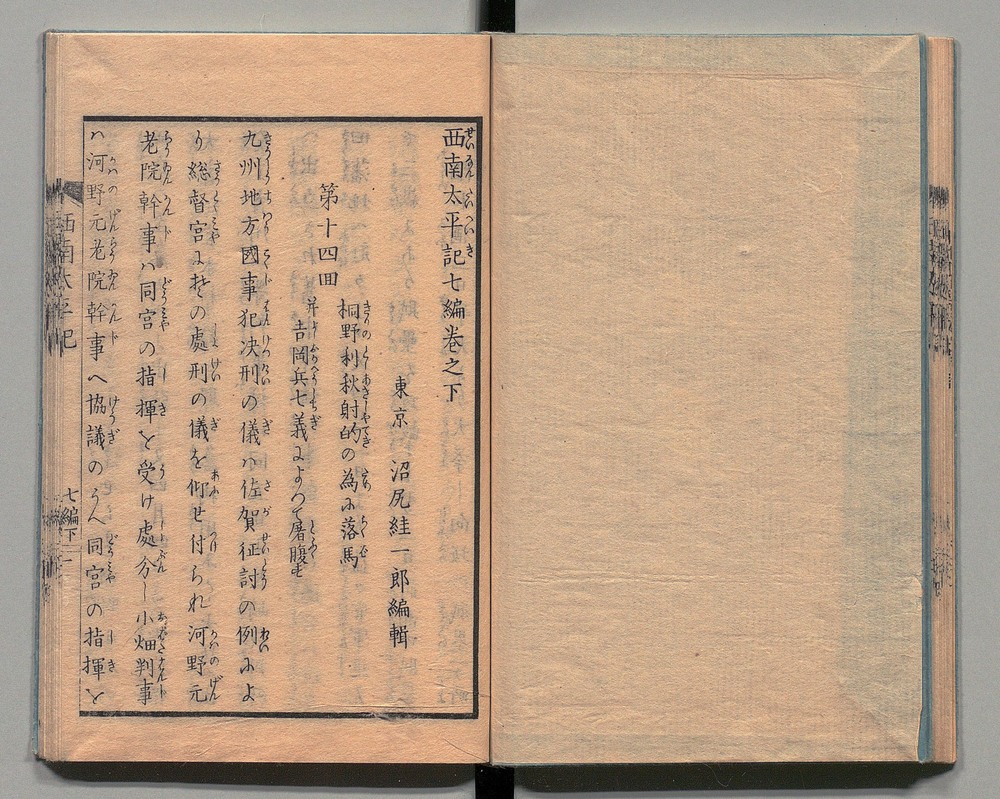 西南太平記七編卷之下
東京 沼尻絓一郎編輯
第十四回
桐野利秋射的の為に落馬
并ニ吉岡兵七義によつて屠腹
九州地方國事犯决刑の儀ハ佐賀征討の例によ
り総督宮に於の處刑の儀を仰せ付られ河野元
老院幹事ハ同宮の指揮を受け處分し小畑判事
ハ河野元老院幹事へ協議のうへ同宮の指揮を
西南太平記
七編下
一